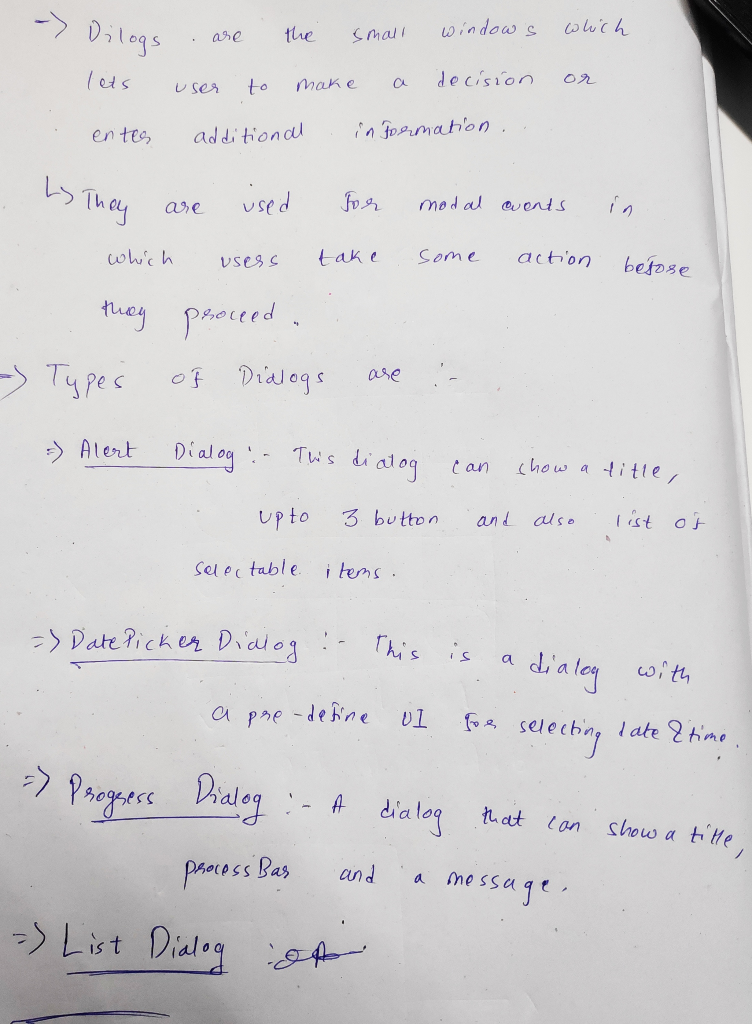 -> Dilogs . are the small windows which
lets user to make a decision or
enter additional information .
↳ They are used for modal events in
which users take some action before
they proceed .
-> Types of Dialogs are :-
=> Alert Dialog :- This dialog can show a title,
upto 3 button and also list of
selectable items .
=> DatePicker Dialog :- This is a dialog with
a pre-define UI for selecting date & time.
=> Progress Dialog :- A dialog that can show a title,
processBar and a message.
=> List Dialog :